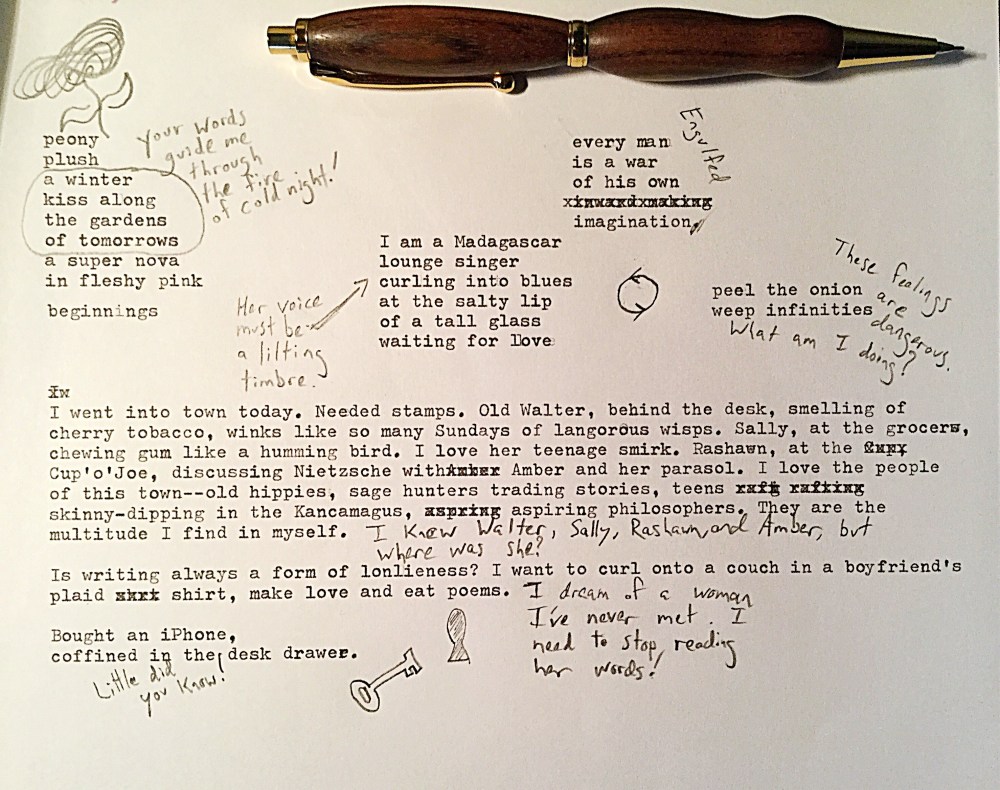 peony
plush
a winter
kiss along
the gardens
of tomorrows
a super nova
in fleshy pink
beginnings
Your words
guide me
through
the fire
of cold night!
every man
is a war
of his own
imagination,
Engulfed
I am a Madagascar
lounge singer
curling into blues
at the salty lip
of a tall glass
waiting for love
Her voice
must be
a lilting
timbre.
peel the onion
weep infinities
These feelings
are
dangerous.
What am I
doing?
In
I went into town today. Needed stamps. Old Walter, behind the desk, smelling of
cherry tobacco, winks like so many Sundays of langorous wisps. Sally, at the grocers,
chewing gum like a humming bird. I love her teenage smirk. Rashawn, at the
Cup'o'Joe, discussing Nietzsche with Amber and her parasol. I love the people
of this town--old hippies, sage hunters trading stories, teens
skinny-dipping in the Kancamagus, aspring aspiring philosophers. They are the
multitude I find in myself. I knew Walter, Sally, Rashawn, and Amber, but
where was she?
Is writing always a form of lonlieness? I want to curl onto a couch in a boyfriend's
plaid shirt, make love and eat poems. I dream of a woman
I've never met. I
need to stop reading
her words!
Bought an iPhone,
coffined in the desk drawer.
Little did
you know!